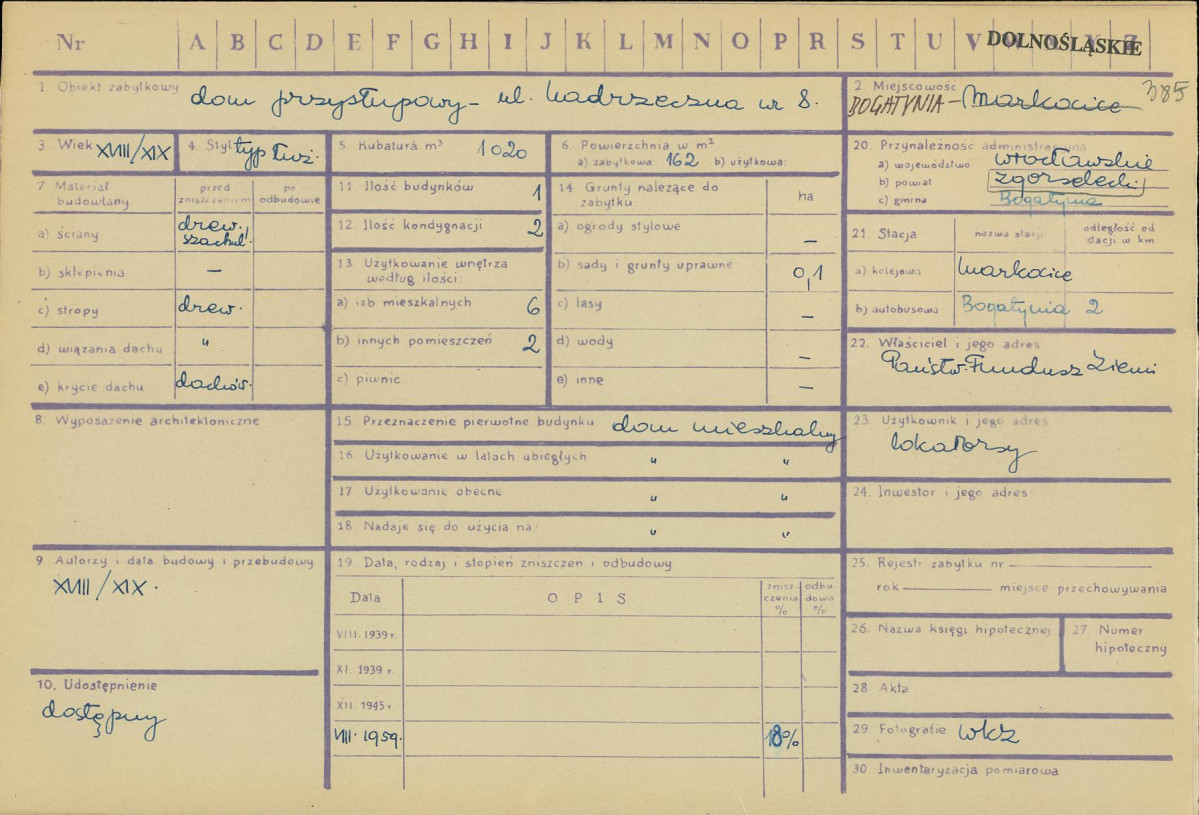 Nr A B C D E F G H I J K L M N O P R S T U V W X Y Z
DOLNOŚLĄSKIE
385
1 Obiekt zabytkowy dom przysłupowy - ul. Nadrzeczna nr 8.
2. Miejscowość
BOGATYNIA - Markocice
3. Wiek XVIII/XIX
4. Styl typ łuż.
5. Kubatura m³ 1020
6. Powierzchnia w m²
a) zabytkowa: 162 b) użytkowa:
20. Przynależność administracyjna
a) województwo wrocławskie
b) powiat zgorzelecki
c) gmina Bogatynia
7 Materiał budowlany
przed zniszczeniem
po odbudowie
a) ściany drew., szachul.
b) sklepienia —
c) stropy drew.
d) wiązania dachu "
e) krycie dachu dachów.
11. Ilość budynków 1
12. Ilość kondygnacji 2
13. Użytkowanie wnętrza
według ilości:
a) izb mieszkalnych 6
b) innych pomieszczeń 2
c) piwnic
14 Grunty należące do
zabytku
ha
a) ogrody stylowe —
b) sady i grunty uprawne 0,1
c) lasy —
d) wody —
e) inne —
21. Stacja
nazwa stacji
odległość od
stacji w km
a) kolejowa Markocice
b) autobusowa Bogatynia 2
22. Właściciel i jego adres
Państw. Fundusz Ziemi
8. Wyposażenie architektoniczne
15. Przeznaczenie pierwotne budynku dom mieszkalny
16. Użytkowanie w latach ubiegłych " "
17 Użytkowanie obecne " "
18 Nadaje się do użycia na: " "
23. Użytkownik i jego adres
lokatorzy
24. Inwestor i jego adres:
9 Autorzy i data budowy i przebudowy
XVIII/XIX.
19. Data, rodzaj i stopień zniszczeń i odbudowy
Data
OPIS
znisz-
czenia
%
odbu
dowa
%
VIII. 1939 r.
XI. 1939 r.
XII. 1945 r
VIII. 1959. 18%
25. Rejestr zabytku nr
rok miejsce przechowywania
26. Nazwa księgi hipotecznej
27. Numer
hipoteczny
10. Udostępnienie
dostępny
28 Akta
29. Fotografie WKZ
30. Inwentaryzacja pomiarowa